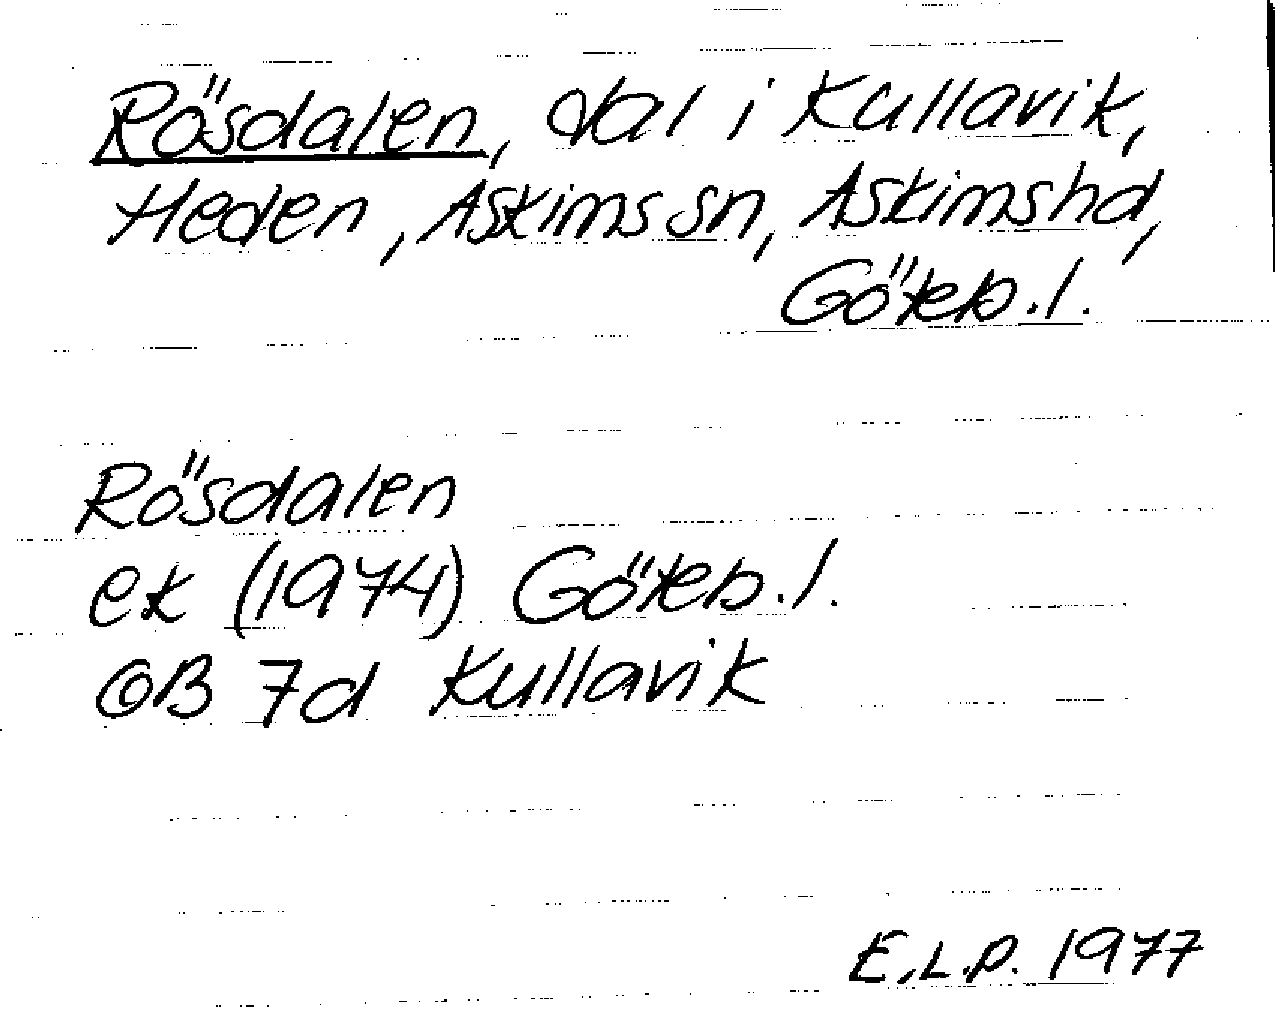 Rösdalen, dal i Kullavik,
Heden, Askims sn, Askims hd,
Göteb. l.
Rösdalen
ek (1974) Göteb. l.
6B 7d Kullavik
E.L.P. 1977